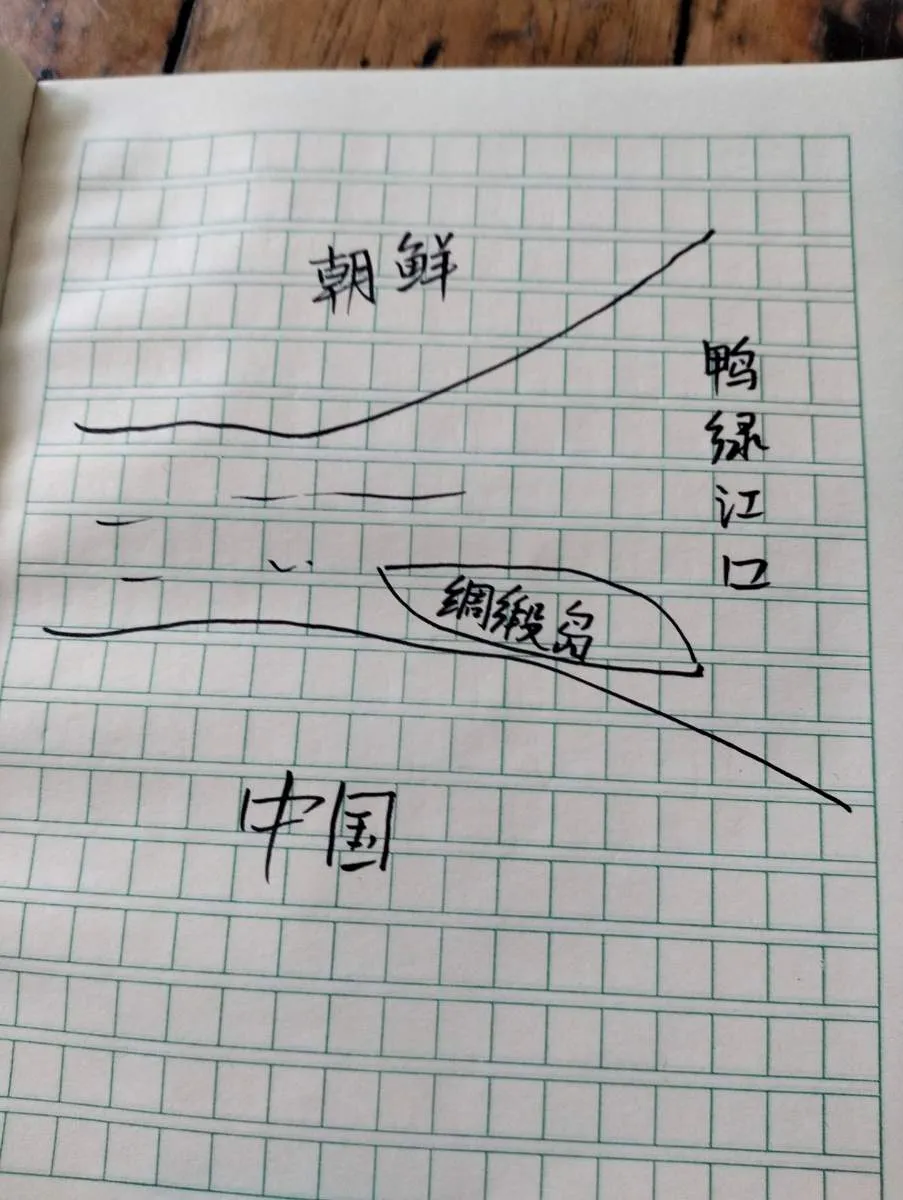 朝鲜
鸭绿江口
绸缎岛
中国